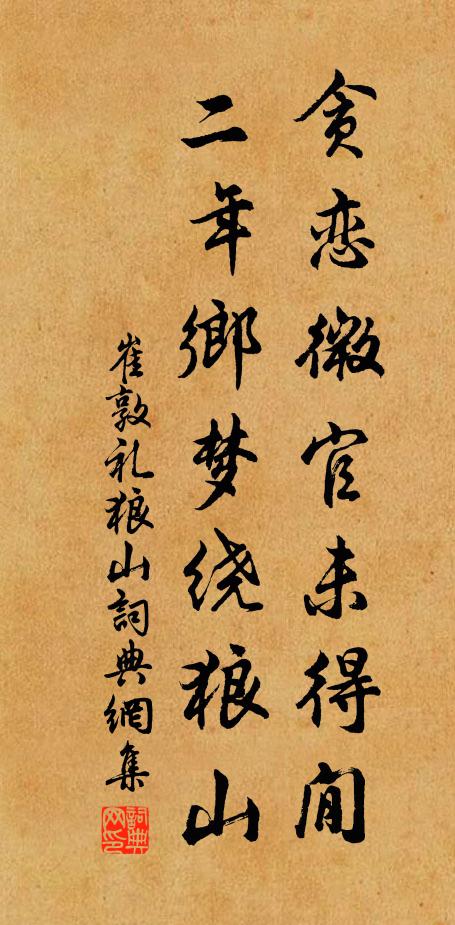 贪恋微官未得闲
二年鄉梦绕狼山
崔敦礼狼山詞典網集
詞典
网印